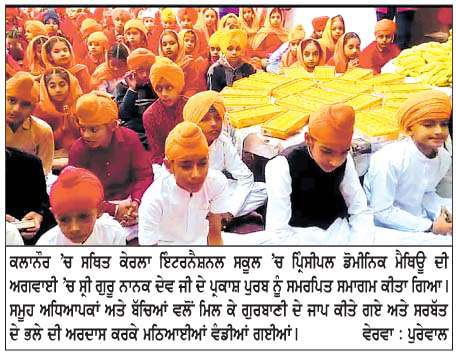 ਕਲਾਨੌਰ 'ਚ ਸਥਿਤ ਕੇਰਲਾ ਇੰਟਰਨੈਸ਼ਨਲ ਸਕੂਲ 'ਚ ਪ੍ਰਿੰਸੀਪਲ ਡੋਮੀਨਿਕ ਮੈਥਿਊ ਦੀ
ਅਗਵਾਈ 'ਚ ਸ੍ਰੀ ਗੁਰੂ ਨਾਨਕ ਦੇਵ ਜੀ ਦੇ ਪ੍ਰਕਾਸ਼ ਪੁਰਬ ਨੂੰ ਸਮਰਪਿਤ ਸਮਾਗਮ ਕੀਤਾ ਗਿਆ।
ਸਮੂਹ ਅਧਿਆਪਕਾਂ ਅਤੇ ਬੱਚਿਆਂ ਵਲੋਂ ਮਿਲ ਕੇ ਗੁਰਬਾਣੀ ਦੇ ਜਾਪ ਕੀਤੇ ਗਏ ਅਤੇ ਸਰਬੱਤ
ਦੇ ਭਲੇ ਦੀ ਅਰਦਾਸ ਕਰਕੇ ਮਠਿਆਈਆਂ ਵੰਡੀਆਂ ਗਈਆਂ। ਵੇਰਵਾ : ਪੁਰੇਵਾਲ